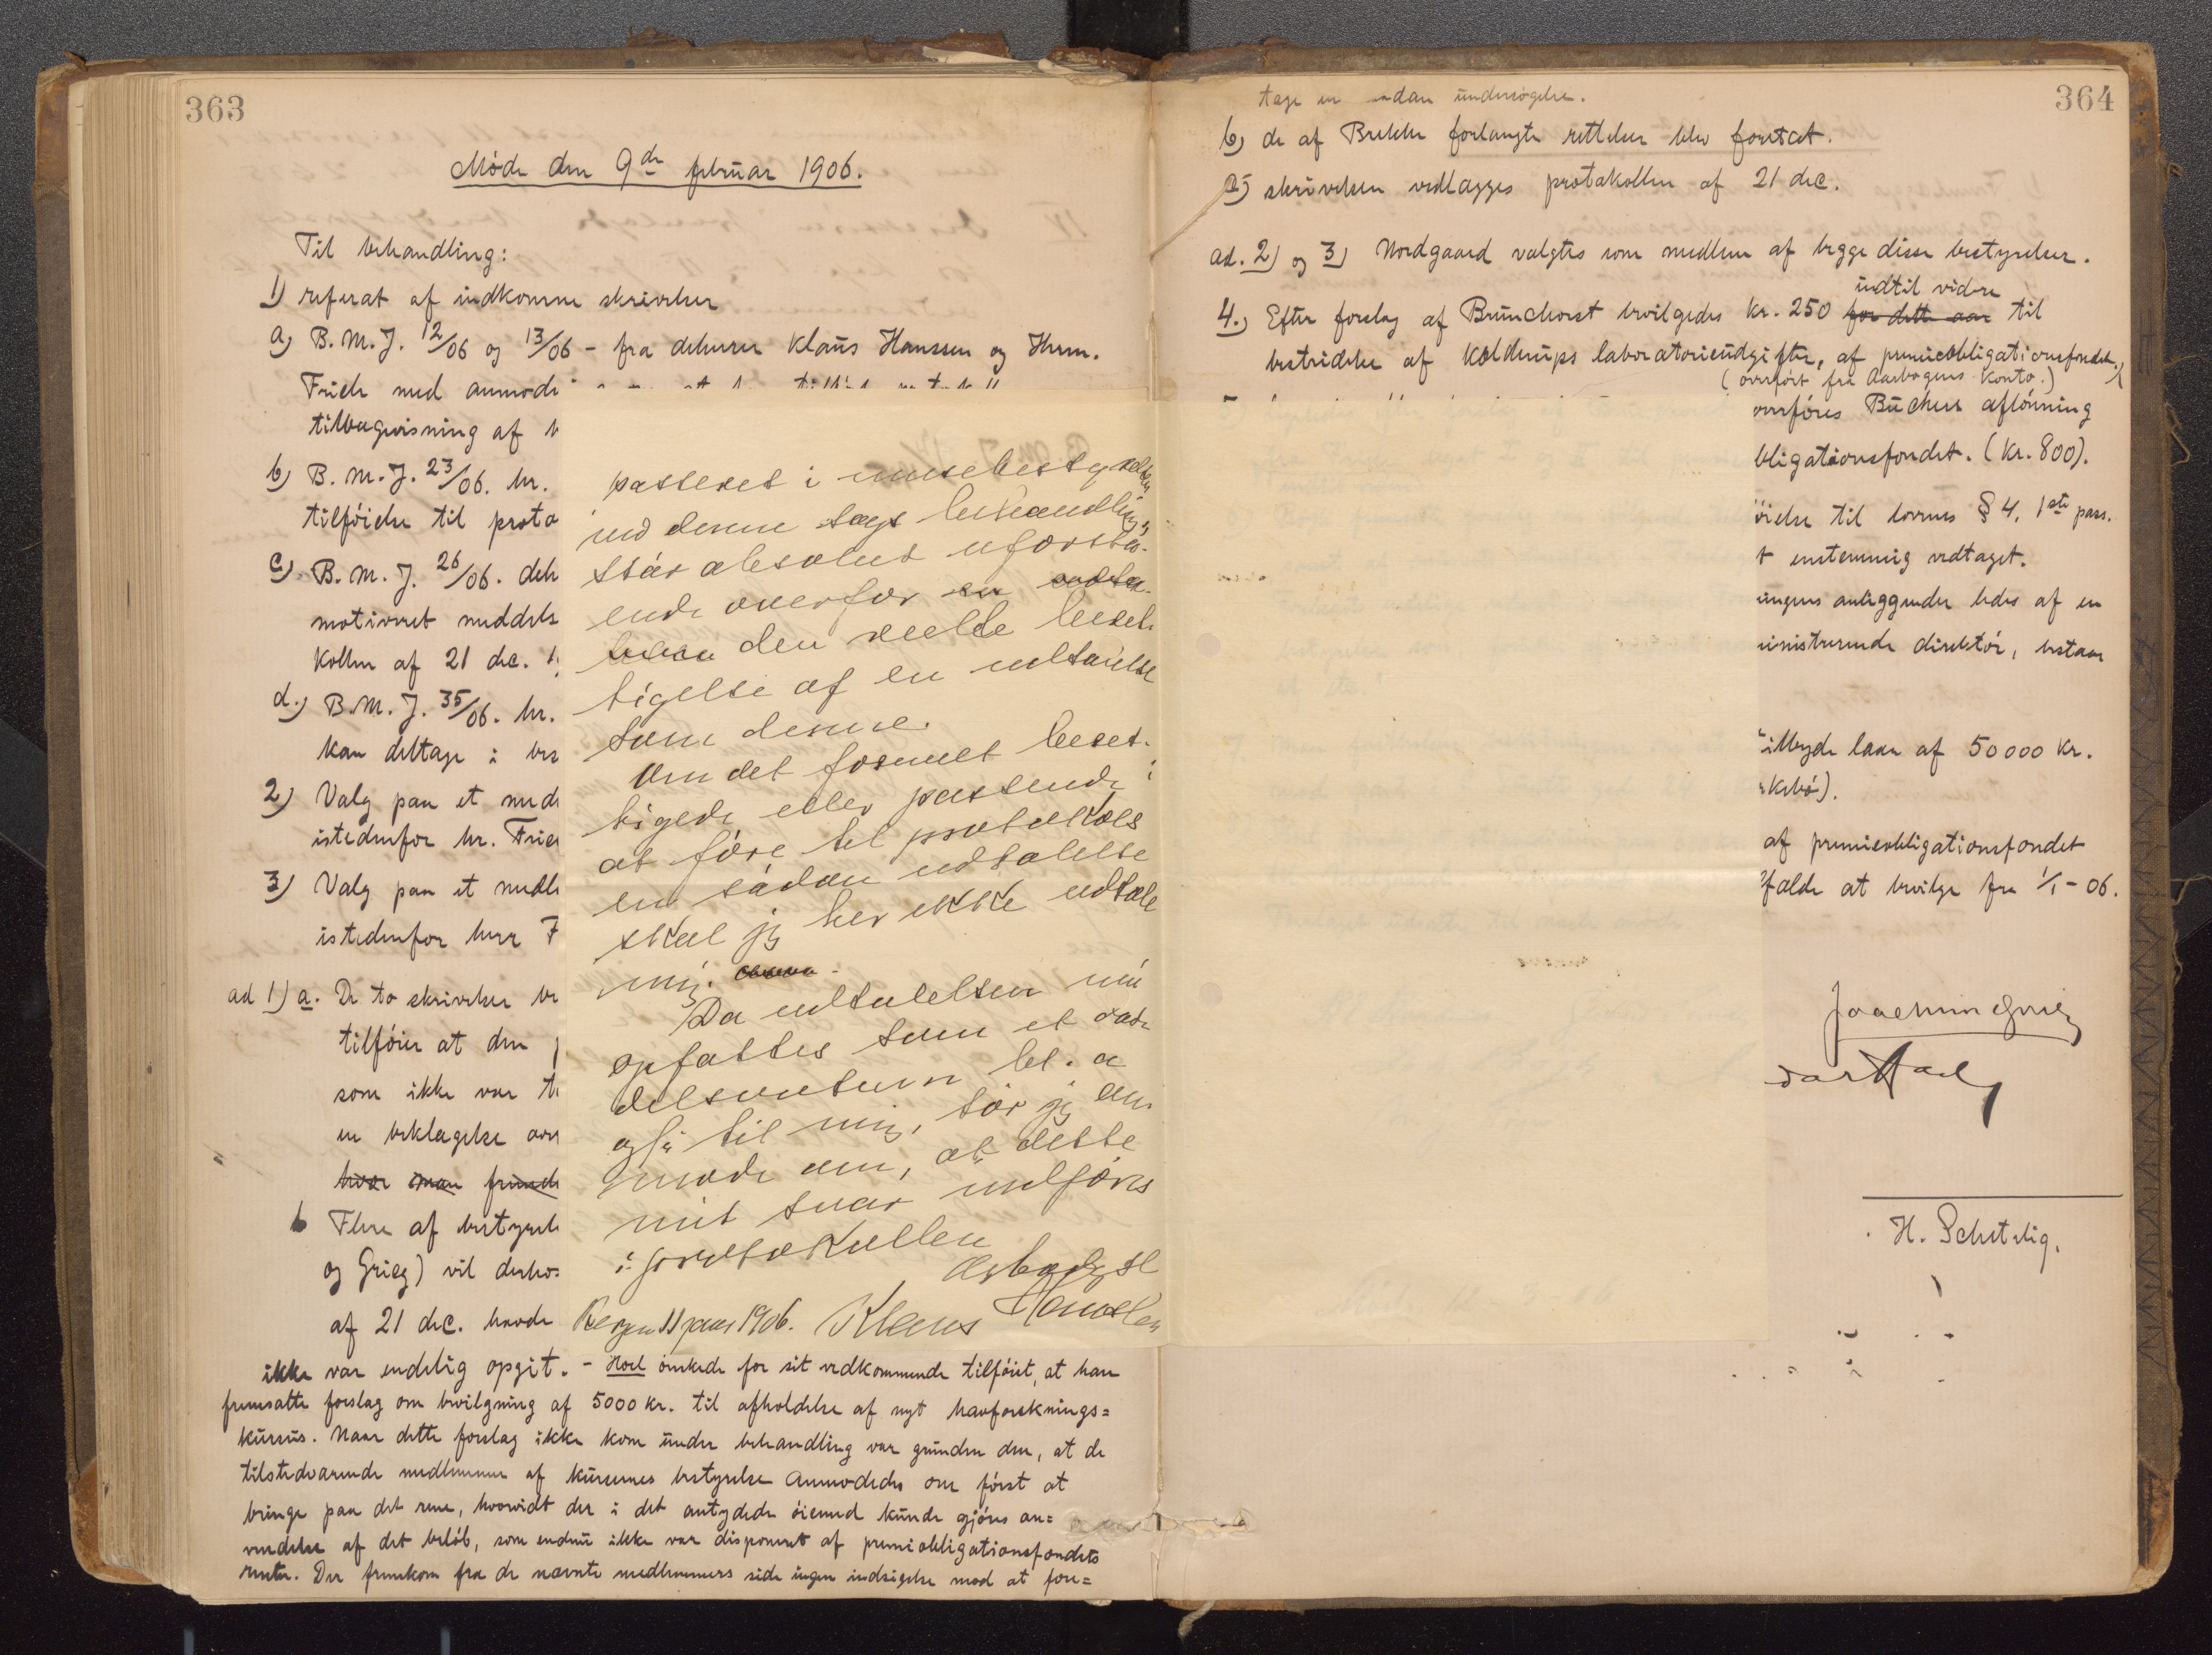 363
Møde den 9de februar 1906.
Til behandling:
1) referat af indkomne skrivelser
a) B. M. J. 12/06 og 13/06 - fra dhrr Klaus Hanssen og Herm.
Friele med anmod
tilbagevisning af
b) B. M. J. 23/06. hr.
tilføielse til proto
c) B. M. J. 26/06.
motiveret meddels
kollen af 21 dec.
d.) B. M. J. 35/06. hr.
kan deltage i bes
2) Valg paa et med
istedenfor hr. Frie
3) Valg paa et medle
istedenfor herr F
ad 1) a. De to skrivelser
tilføier at den
som ikke var
en beklagelse over
hvor man
b Flere af bestyrel
og Grieg) vil
af 21 dec. havde
ikke var endelig opgit. - Hoel ønskede for sit vedkommende tilføiet, at han
fremsatte forslag om bevilgning af 5000 kr. til afholdelse af nyt havforsknings=
kursus. Naar dette forslag ikke kom under behandling var grunden den, at de
tilstedværende medlemmer af kursernes bestyrelse anmodedes om først at
bringe paa det rene, hvorvidt der i det antydede øiemed kunde gjøres an=
vendelse af det beløb, som endnu ikke var disponeret af premieobligationsfondets
renter. Der fremkom fra de nævnte medlemmers side ingen indsigelse mod at fore=
passeret i museibestyrelsen
ved denne sags behandling,
står absolut uforstå-
ende overfor
den reelle beret-
tigelse af en udtalelse
som denne.
Om det formelt beret-
tigede eller passende i
at føre til protokols
en sådan udtalelse
skal jeg her ikke udtale
mig.
Da udtalelsen må
opfattes som et
delsvotum bl. a
også til mig, tør jeg an-
mode om, at dette
mit svar indføres
i protokollen
Ærbødigst
Bergen 11 januar 1906. Klaus Hanssen
364
tage en sådan undersøgelse.
b) de af Brekke forlangte rettelser blev foretaget.
c) skrivelsen vedlægges protokollen af 21 dec.
ad. 2) og 3) Nordgaard valgtes som medlem af begge disse bestyrelser.
indtil videre
4.) Efter forslag af Brunchorst bevilgedes kr. 250 for dette aar til
bestridelse af Kolderups laboratorieudgifter, af premieobligationsfondet.
(overført fra Aarbogens konto.)
overføres Büchers aflønning
bligationsfondet. (kr. 800).
øielse til lovens § 4, 1ste pass.
t enstemmig vedtaget.
ingens anliggender ledes af en
ministrerende direktør, bestaar
tilbyde laan af 50 000 kr.
af premieobligationsfondet
falde at bevilge fra 1/1 - 06.
Joachim Grieg
H. Schetelig.